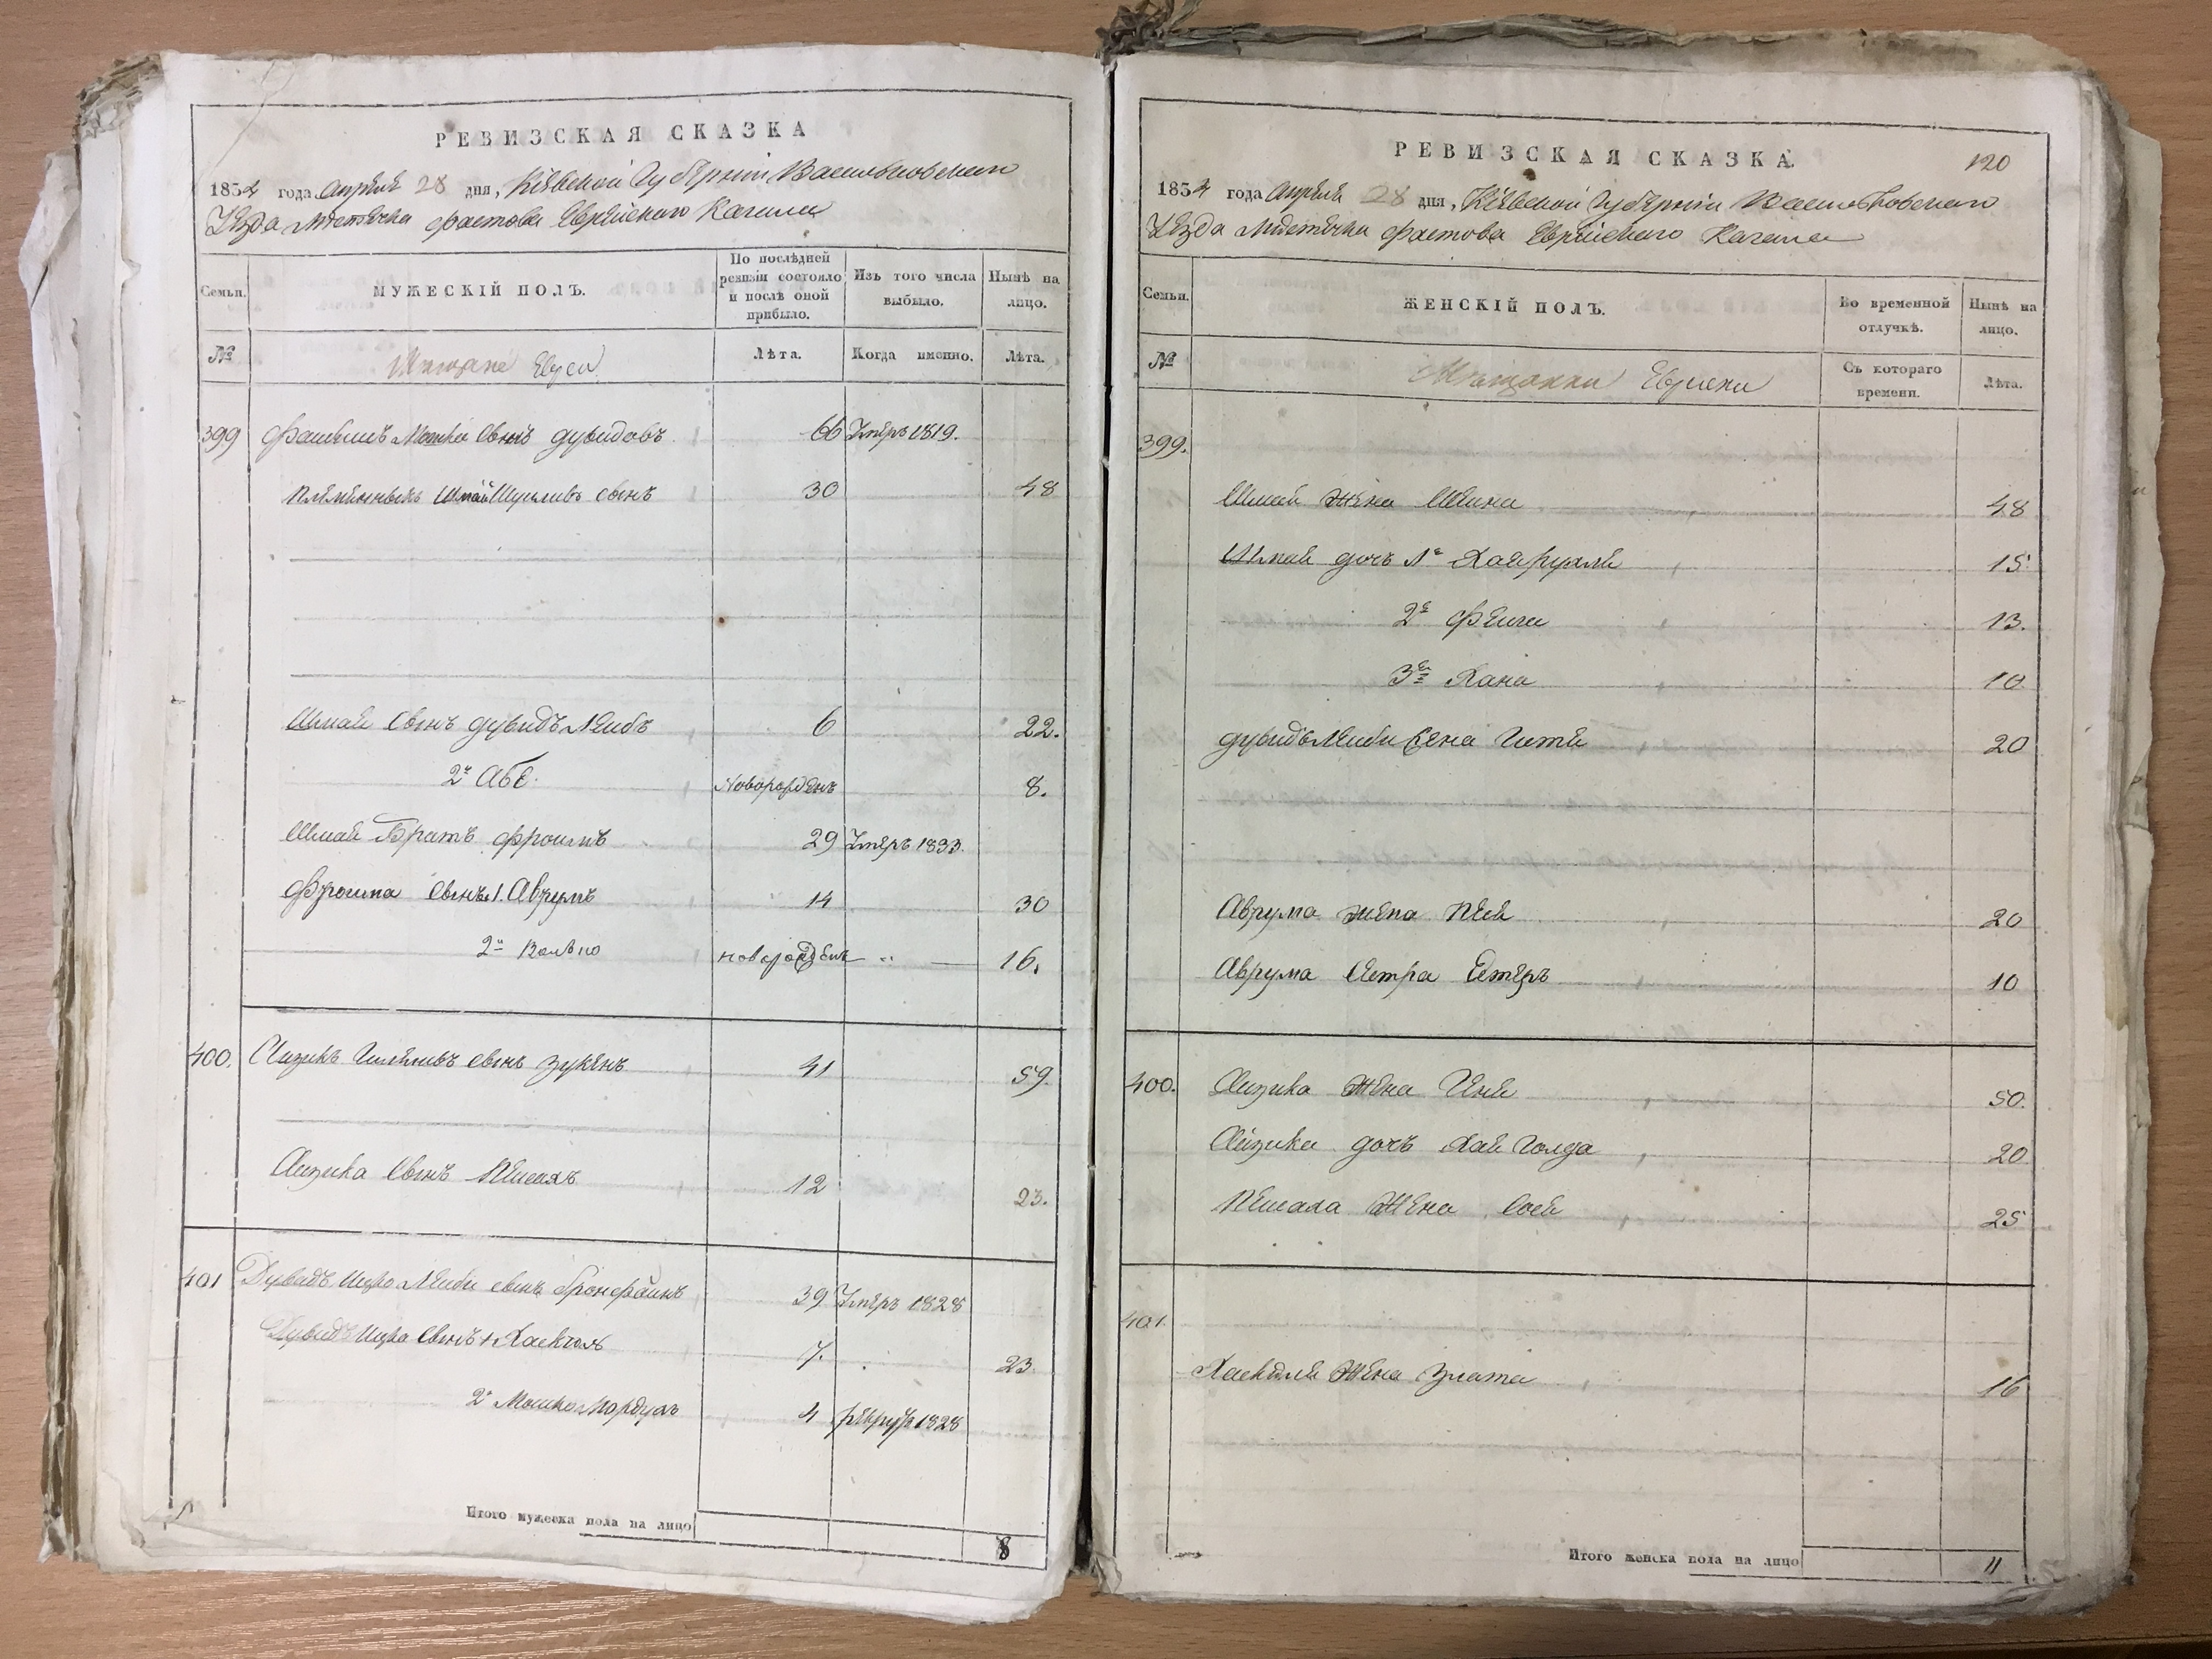 РЕВИЗСКАЯ СКАЗКА
1834 года апреля 28 дня, Кіевской Губерніи Васильковскаго
Уезда местечка Фастова Еврейскаго Кагала
Семьи.
МУЖЕСКІЙ ПОЛЪ.
По послѣдней ревизіи состояло и послѣ оной прибыло.
Изъ того числа выбыло.
Нынѣ на лицо.
№
Мещане Евреи
Лѣта.
Когда именно.
Лѣта.
399 Мошко сынъ Дувидовъ 66 Умеръ 1819.
племенникъ Шмай сынъ 30 48
Шмаи сынъ Дувидъ Лейбъ 6 22.
2й Абе. новорожденъ 8.
Шмаи Братъ Фроимъ 29 Умеръ 1833.
Фроима сынъ 1. Аврумъ 14 30
2й новорожденъ „ 16.
400. Айзикъ сынъ Зукенъ 41 59.
Айзика сынъ Пейсахъ 12 23.
401 Дувидъ Лейби сынъ Бронфайнъ 39 Умеръ 1828
Дувидъ сынъ 1 Хаскель 7. 23.
2й Мошко Мордухъ 4 рекрутъ 1828
Итого мужеска пола на лицо 8
РЕВИЗСКАЯ СКАЗКА. 120
1834 года апреля 28 дня, Кіевской Губерніи Васильковскаго
Уезда местечка Фастова Еврейскаго Кагала
Семьи.
ЖЕНСКІЙ ПОЛЪ.
Во временной отлучкѣ.
Нынѣ на лицо.
№
Мещанки Еврейки
Съ котораго времени.
Лѣта.
399.
Шмаи жена Шейна 48
Шмаи дочь 1я Хаярухля 15
2я Фейга 13.
3я Хана 10
Дувидъ Лейби жена Гитя 20
Аврума жена Песя 20
Аврума сестра Естеръ 10
400. Айзика жена Геня 50.
Айзика дочь Хая Голда 20
Пейсаха жена Сося 25
401.
Хаскеля жена Злата 16
Итого женска пола на лицо 11